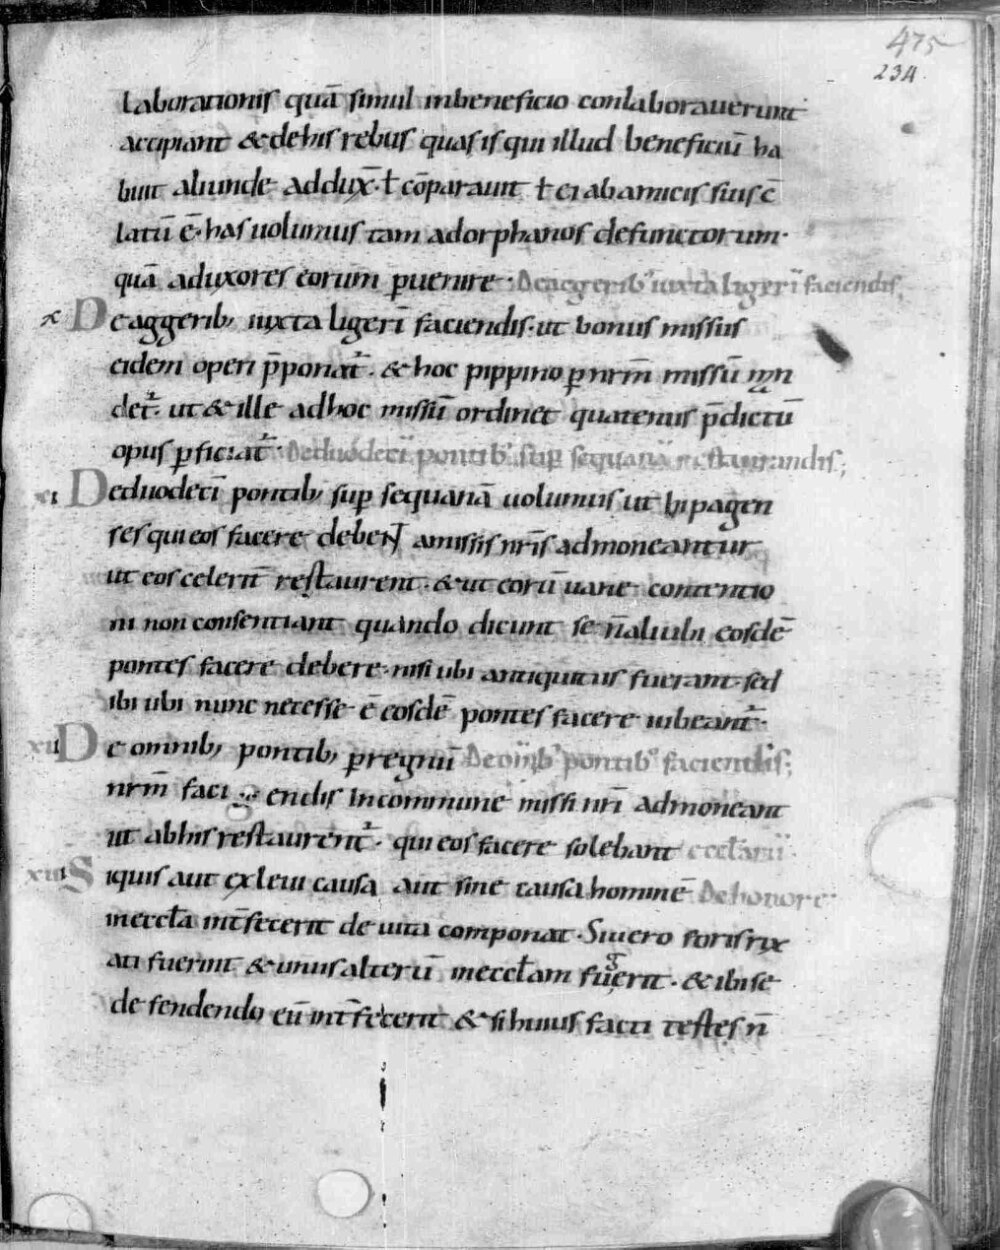 475
234
laborationis quā simul inbeneficio conlaborauerunt
accipiant &dehis rebus quas is qui illud beneficiū ha
buit aliunde addux̄· ƚ cōparauit ƚ ei abamicis suis c̄
latū ē· has uolumus tam adorphanos defunctorum·
quā aduxores eorum puenire· De aggerib' iuxta ligerī faciendis;
x De aggerib; iuxta ligerī faciendis· ut bonus missus
eidem operi p̄ponat᷑· & hoc pippino p nrm̄ missū man
det᷑· ut & ille adhoc missū ordinet quatenus p̄dictū
opus pficiat᷑· De duodecī pontib' sup sequanā restaurandis;
xi De duodecī pontib; sup sequanā uolumus ut hi pagen
ses qui eos facere debent amissis nrīs admoneantur
ut eos celerit̄ restaurent· & ut eorū uane contentio
ni non consentiant quando dicunt se n̄ aliubi eosdē
pontes facere debere· nisi ubi antiquitus fuerant· sed
ibi ubi nunc necesse ē eosdē pontes facere iubeant᷑·
xii De omnib; pontib; p regnū De omīb' pontib' faciendis;
nrm̄ faciendis incommune missi nrī admoneant
ut abhis restaurent᷑· qui eos facere solebant ecclarū·
xiii Siquis aut ex leui causa aut sine causa hominē De honore
inecclā int̄fecerit de uita componat· Si uero foris rix
ati fuerint & unus alterū inecclam fugerit· & ibi se
defendendo eū int̄fecerit & si huius facti testes n̄